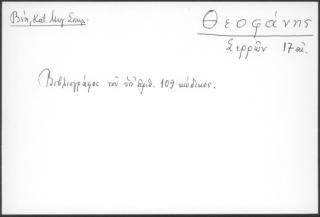 Βέη, Κατ. Μον. Σπηλ.
Θεοφάνης
Σερρῶν 17 αἰ.
Βιβλιογράφος τοῦ ὑπ' ἀριθ. 109 κώδικος.